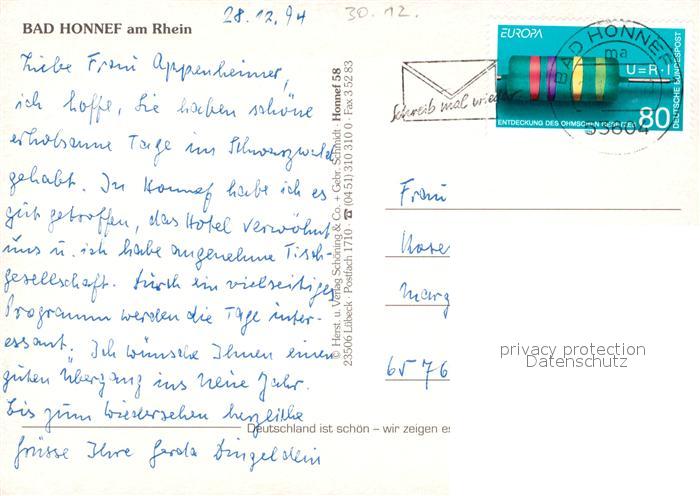 28.12.94
30.12.
BAD HONNEF am Rhein
Liebe Frau Appenheimer,
ich hoffe, Sie haben schöne
erholsame Tage im Schwarzwald
gehabt. In Honnef habe ich es
gut getroffen, das Hotel verwöhnt
uns u. ich habe angenehme Tisch-
gesellschaft. Durch ein vielseitiges
Programm werden die Tage inter-
essant. Ich wünsche Ihnen einen
guten Übergang ins Neue Jahr.
Bis zum Wiedersehen herzliche
Grüsse Ihre Gerda Dingeldein
Deutschland ist schön – wir zeigen es
© Herst. u. Verlag Schöning & Co. + Gebr. Schmidt · Honnef 58
23506 Lübeck · Postfach 1710 · ☎ (0451) 310 310 0 · Fax 3 52 83
Schreib mal wieder
EUROPA
U=R·I
ENTDECKUNG DES OHMSCHEN GESETZES
80
DEUTSCHE BUNDESPOST
BAD HONNEF
ma
53604
Frau
Rose
Marg
6576
privacy protection
Datenschutz